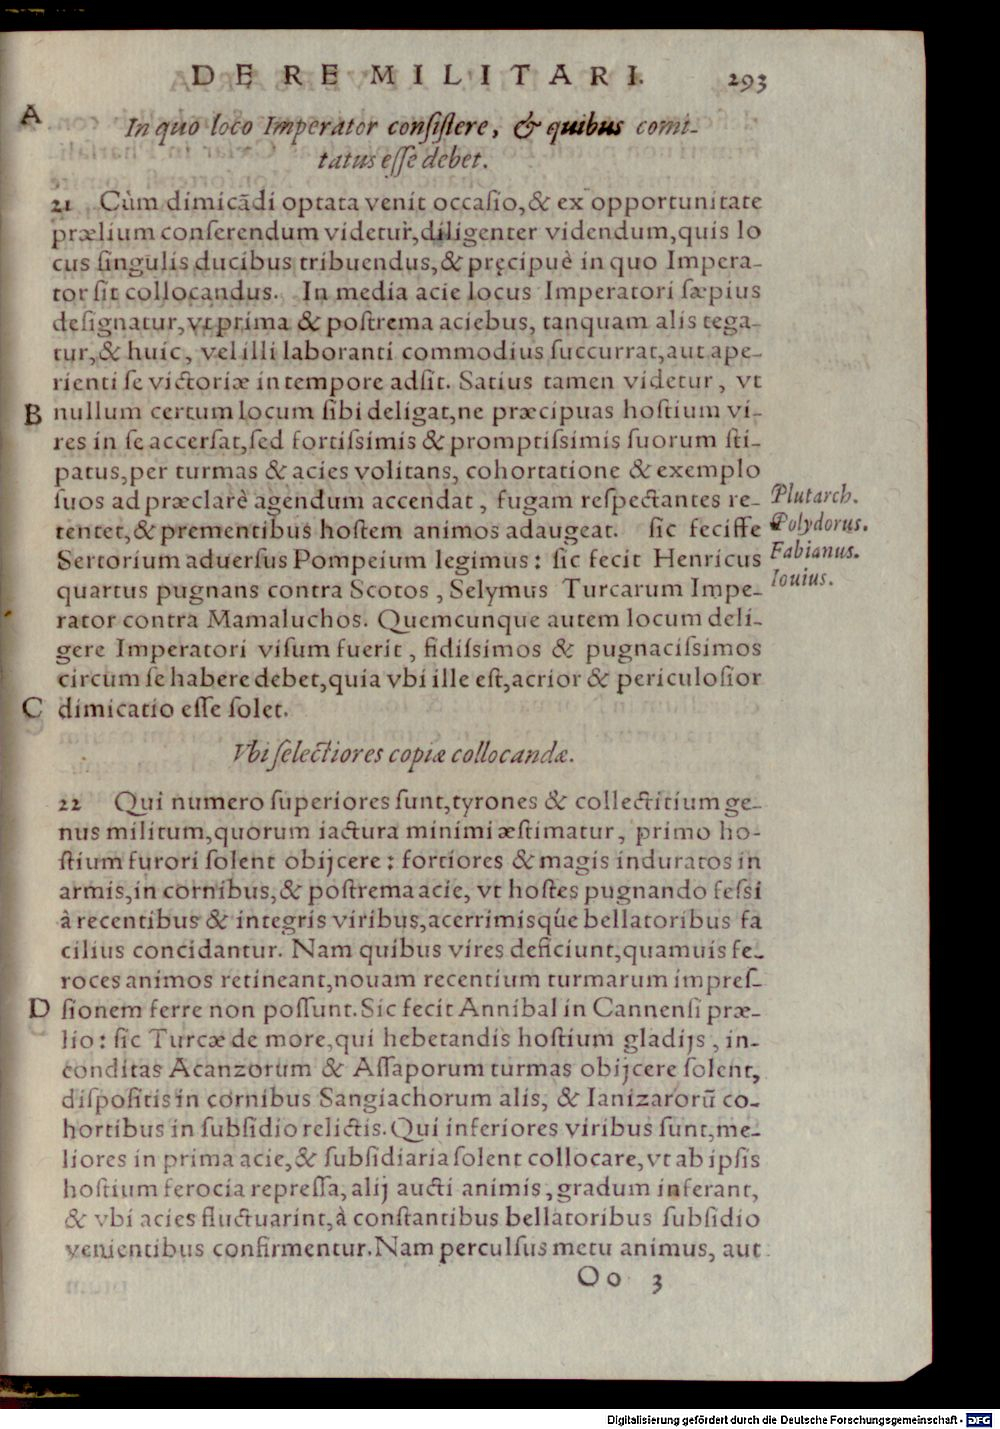 DE RE MILITARI. 293
A
In quo loco Imperator consistere, & quibus comi-
tatus esse debet.
21 Cùm dimicādi optata venit occasio, & ex opportunitate
prælium conserendum videtur, diligenter videndum, quis lo
cus singulis ducibus tribuendus, & pręcipuè in quo Impera-
tor sit collocandus. In media acie locus Imperatori sæpius
designatur, vt prima & postrema aciebus, tanquam alis tega-
tur, & huic, vel illi laboranti commodius succurrat, aut ape-
rienti se victoriæ in tempore adsit. Satius tamen videtur, vt
B nullum certum locum sibi deligat, ne præcipuas hostium vi-
res in se accersat, sed fortissimis & promptissimis suorum sti-
patus, per turmas & acies volitans, cohortatione & exemplo
suos ad præclarè agendum accendat, fugam respectantes re-
tentet, & prementibus hostem animos adaugeat. sic fecisse
Sertorium aduersus Pompeium legimus: sic fecit Henricus
quartus pugnans contra Scotos, Selymus Turcarum Impe-
rator contra Mamaluchos. Quemcunque autem locum deli-
gere Imperatori visum fuerit, fidissimos & pugnacissimos
circum se habere debet, quia vbi ille est, acrior & periculosior
C dimicatio esse solet.
Plutarch.
Polydorus.
Fabianus.
Iouius.
Vbi selectiores copiæ collocandæ.
22 Qui numero superiores sunt, tyrones & collectitium ge-
nus militum, quorum iactura minimi æstimatur, primo ho-
stium furori solent obijcere: fortiores & magis induratos in
armis, in cornibus, & postrema acie, vt hostes pugnando fessi
à recentibus & integris viribus, acerrimisque bellatoribus fa
cilius concidantur. Nam quibus vires deficiunt, quamuis fe-
roces animos retineant, nouam recentium turmarum impres-
D sionem ferre non possunt. Sic fecit Annibal in Cannensi præ-
lio: sic Turcæ de more, qui hebetandis hostium gladijs, in-
conditas Acanzorum & Assaporum turmas obijcere solent,
dispositis in cornibus Sangiachorum alis, & Ianizarorū co-
hortibus in subsidio relictis. Qui inferiores viribus sunt, me-
liores in prima acie, & subsidiaria solent collocare, vt ab ipsis
hostium ferocia repressa, alij aucti animis, gradum inferant,
& vbi acies fluctuarint, à constantibus bellatoribus subsidio
venientibus confirmentur. Nam perculsus metu animus, aut
Oo 3
Digitalisierung gefördert durch die Deutsche Forschungsgemeinschaft - DFG